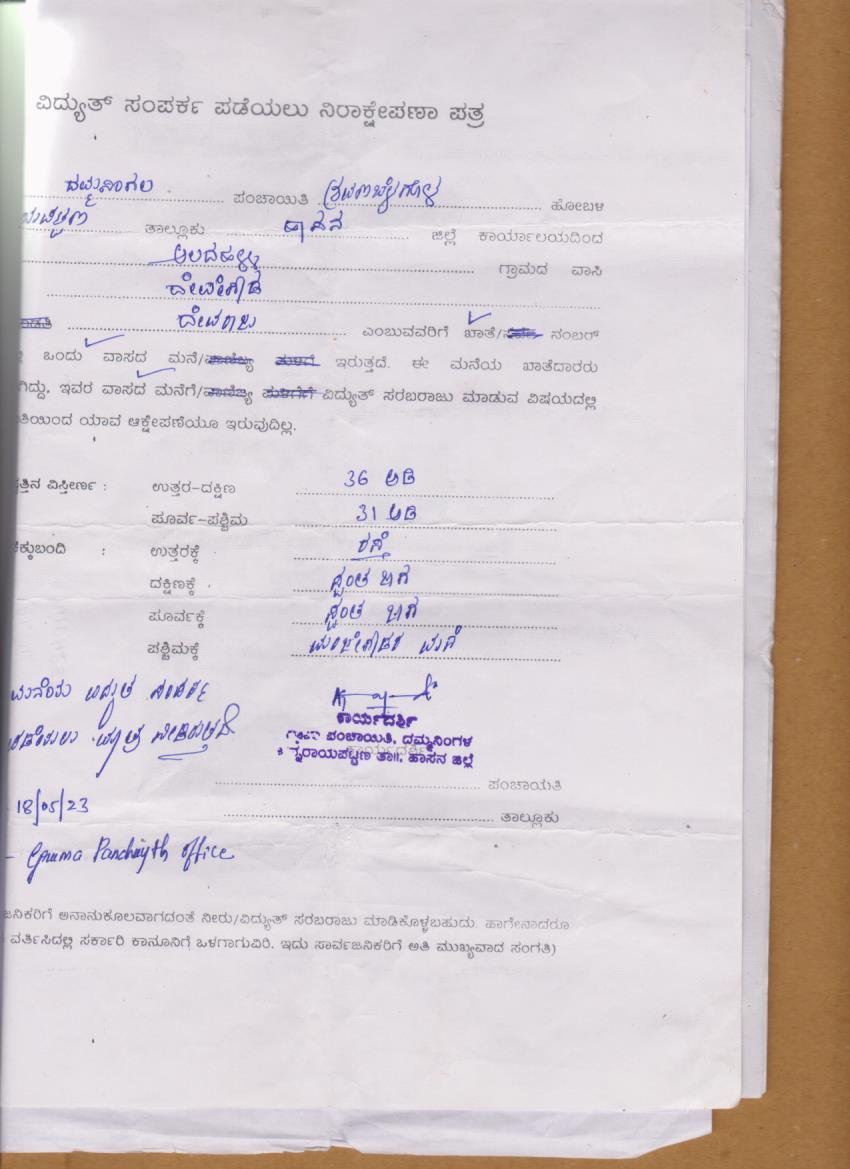 ವಿದ್ಯುತ್ ಸಂಪರ್ಕ ಪಡೆಯಲು ನಿರಾಕ್ಷೇಪಣಾ ಪತ್ರ
ದಮ್ಮನಿಂಗಲ ಪಂಚಾಯಿತಿ ಶ್ರವಣಬೆಳಗೊಳ ಹೋಬಳಿ
ತಾಲ್ಲೂಕು ಹಾಸನ ಜಿಲ್ಲೆ ಕಾರ್ಯಾಲಯದಿಂದ
ಆಲದಹಳ್ಳಿ ಗ್ರಾಮದ ವಾಸಿ
ದೇವೇಗೌಡ
ದೇವರಾಜು ಎಂಬುವವರಿಗೆ ಖಾತೆ/ ನಂಬರ್
ಒಂದು ವಾಸದ ಮನೆ/ವಾಣಿಜ್ಯ ಮಳಿಗೆ ಇರುತ್ತದೆ. ಈ ಮನೆಯ ಖಾತೆದಾರರು
ಗಿದ್ದು, ಇವರ ವಾಸದ ಮನೆಗೆ/ವಾಣಿಜ್ಯ ಮಳಿಗೆಗೆ ವಿದ್ಯುತ್ ಸರಬರಾಜು ಮಾಡುವ ವಿಷಯದಲ್ಲಿ
ತಿಯಿಂದ ಯಾವ ಆಕ್ಷೇಪಣೆಯೂ ಇರುವುದಿಲ್ಲ.
ತ್ತಿನ ವಿಸ್ತೀರ್ಣ : ಉತ್ತರ-ದಕ್ಷಿಣ 36 ಅಡಿ
ಪೂರ್ವ-ಪಶ್ಚಿಮ 31 ಅಡಿ
ಕ್ಕುಬಂದಿ : ಉತ್ತರಕ್ಕೆ ರಸ್ತೆ
ದಕ್ಷಿಣಕ್ಕೆ ಸ್ವಂತ ಜಾಗ
ಪೂರ್ವಕ್ಕೆ ಸ್ವಂತ ಜಾಗ
ಪಶ್ಚಿಮಕ್ಕೆ ಮಂಜೇಗೌಡರ ಮನೆ
ಮನೆಯ ವಿದ್ಯುತ್ ಸಂಪರ್ಕ
ಪಡೆಯಲು ಮಾತ್ರ ನೀಡಿರುತ್ತದೆ
ಕಾರ್ಯದರ್ಶಿ
ಗ್ರಾಮ ಪಂಚಾಯಿತಿ, ದಮ್ಮನಿಂಗಳ
ಕಾರ್ಯದರ್ಶಿ
ನ್ನರಾಯಪಟ್ಟಣ ತಾ||, ಹಾಸನ ಜಿಲ್ಲೆ
ಪಂಚಾಯತಿ
18/05/23 ತಾಲ್ಲೂಕು
- Grama Panchayth office
ಜನಿಕರಿಗೆ ಅನಾನುಕೂಲವಾಗದಂತೆ ನೀರು/ವಿದ್ಯುತ್ ಸರಬರಾಜು ಮಾಡಿಕೊಳ್ಳಬಹುದು. ಹಾಗೇನಾದರೂ
ವರ್ತಿಸಿದಲ್ಲಿ ಸರ್ಕಾರಿ ಕಾನೂನಿಗೆ ಒಳಗಾಗುವಿರಿ. ಇದು ಸಾರ್ವಜನಿಕರಿಗೆ ಅತಿ ಮುಖ್ಯವಾದ ಸಂಗತಿ)